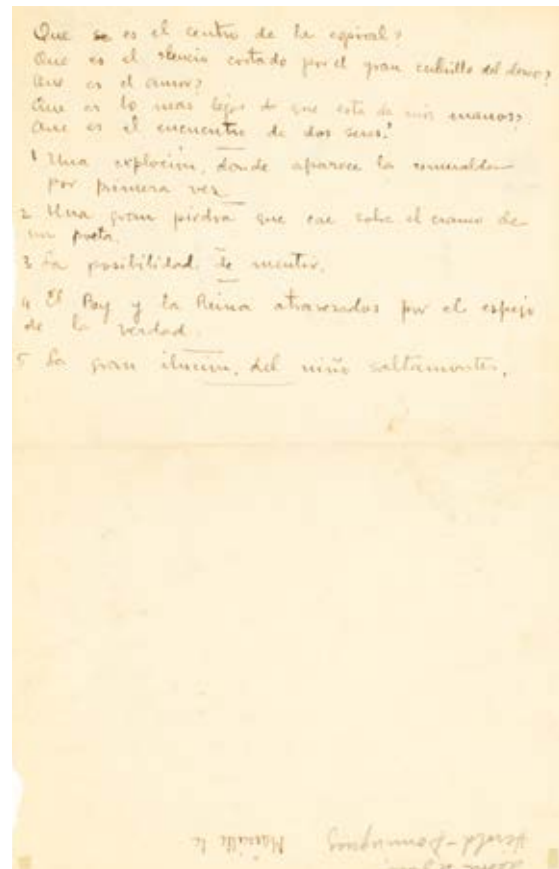 Que es el centro de la espiral?
Que es el silencio cortado por el gran cuchillo del deseo?
Que es el amor?
Que es lo mas lejos de que esta de mis manos?
Que es el encuentro de dos seres?
1 Una exploción, donde aparece la esmeralda
por primera vez
2 Una gran piedra que cae sobre el craneo de
un poeta.
3 La posibilidad de mentir.
4 El Rey y la Reina atravesados por el espejo
de la verdad.
5 La gran ilusion, del niño saltamontes.
Marseille le
Hérold-Dominguez